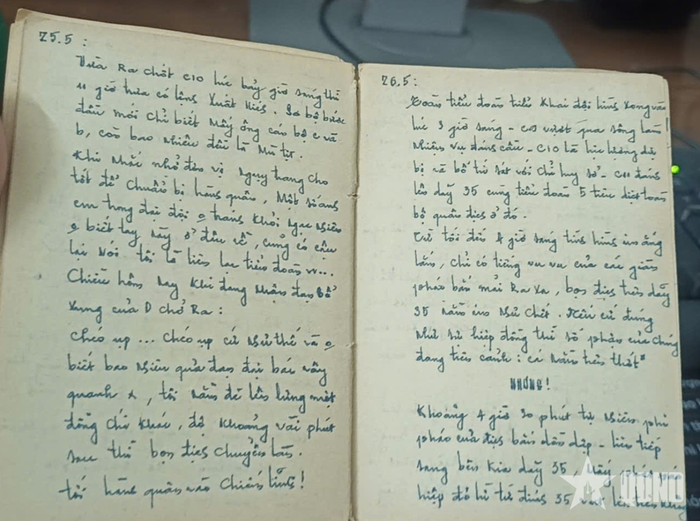 25.5 :
Vừa Ra chốt C10 lúc bảy giờ sáng thì
11 giờ trưa có lệnh Xuất Kích. Sơ bộ bước
đầu mới chỉ biết mấy ông cán bộ c và
b, còn bao nhiêu đều là Mù tịt.
Khi nhắc nhở đơn vị ngụy trang cho
tốt để chuẩn bị hành quân, Một số anh
em trong đại đội o tránh khỏi ngạc nhiên
o biết tay này ở đâu về, cũng có câu
lại nói tôi là liên lạc tiểu đoàn v...
Chiều hôm nay khi đang nhận đạn bổ
xung của D chở Ra :
chéo up ... chéo up cứ như thế và o
biết bao nhiêu quả đạn đại bác vây
quanh x, tôi nằm đè lên lưng một
đồng chí khác, độ khoảng vài phút
sau thì bọn địch chuyển làn.
tối hành quân vào chiến lũy!
26.5 :
Toàn tiểu đoàn triển khai đội hình xong vào
lúc 3 giờ sáng - vượt qua sông làm
nhiệm vụ đánh - C10 là lực lượng dự
bị và bố trí sát với chỉ huy sở - C11 đánh
lên dãy 35 cùng tiểu đoàn 5 tiêu diệt toàn
bộ quân địch ở đó.
Từ tối đến 4 giờ sáng tình hình im ắng
lắm, chỉ có tiếng vu vu của các giàn
pháo bắn mãi Ra xa, bọn địch trên dãy
35 nằm im như chết. Nếu cứ đúng
như sự hiệp đồng thì số phận của chúng
đang trên cảnh : cá nằm trên thớt"
NHƯNG!
Khoảng 4 giờ 30 phút tự nhiên phi
pháo của địch bắn dồn dập - liên tiếp
sang bên kia dãy 35. Mấy phút
hiệp đồ là từ đỉnh 35